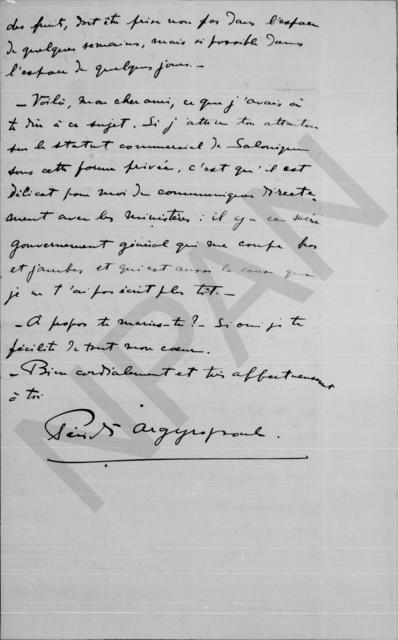 des fruit, doit être prise non pas dans l'espace
de quelques semaines, mais si possible dans
l'espace de quelques jours. —
— Voilà, mon cher ami, ce que j'avais à
te dire à ce sujet. Si j'attire ton attention
sur le statut commercial de Salonique
sous cette forme privée, c'est qu'il est
délicat pour moi de communiquer directe-
ment avec les Ministères : il y a ce sacré
gouvernement général qui me coupe bras
et jambes et qui est aussi la cause que
je ne t'ai pas écrit plus tôt. —
— A propos te maries-te ? — Si oui je te
félicite de tout mon cœur.
— Bien cordialement et très affectueusement
à toi
Argyropoulo.
NPAN